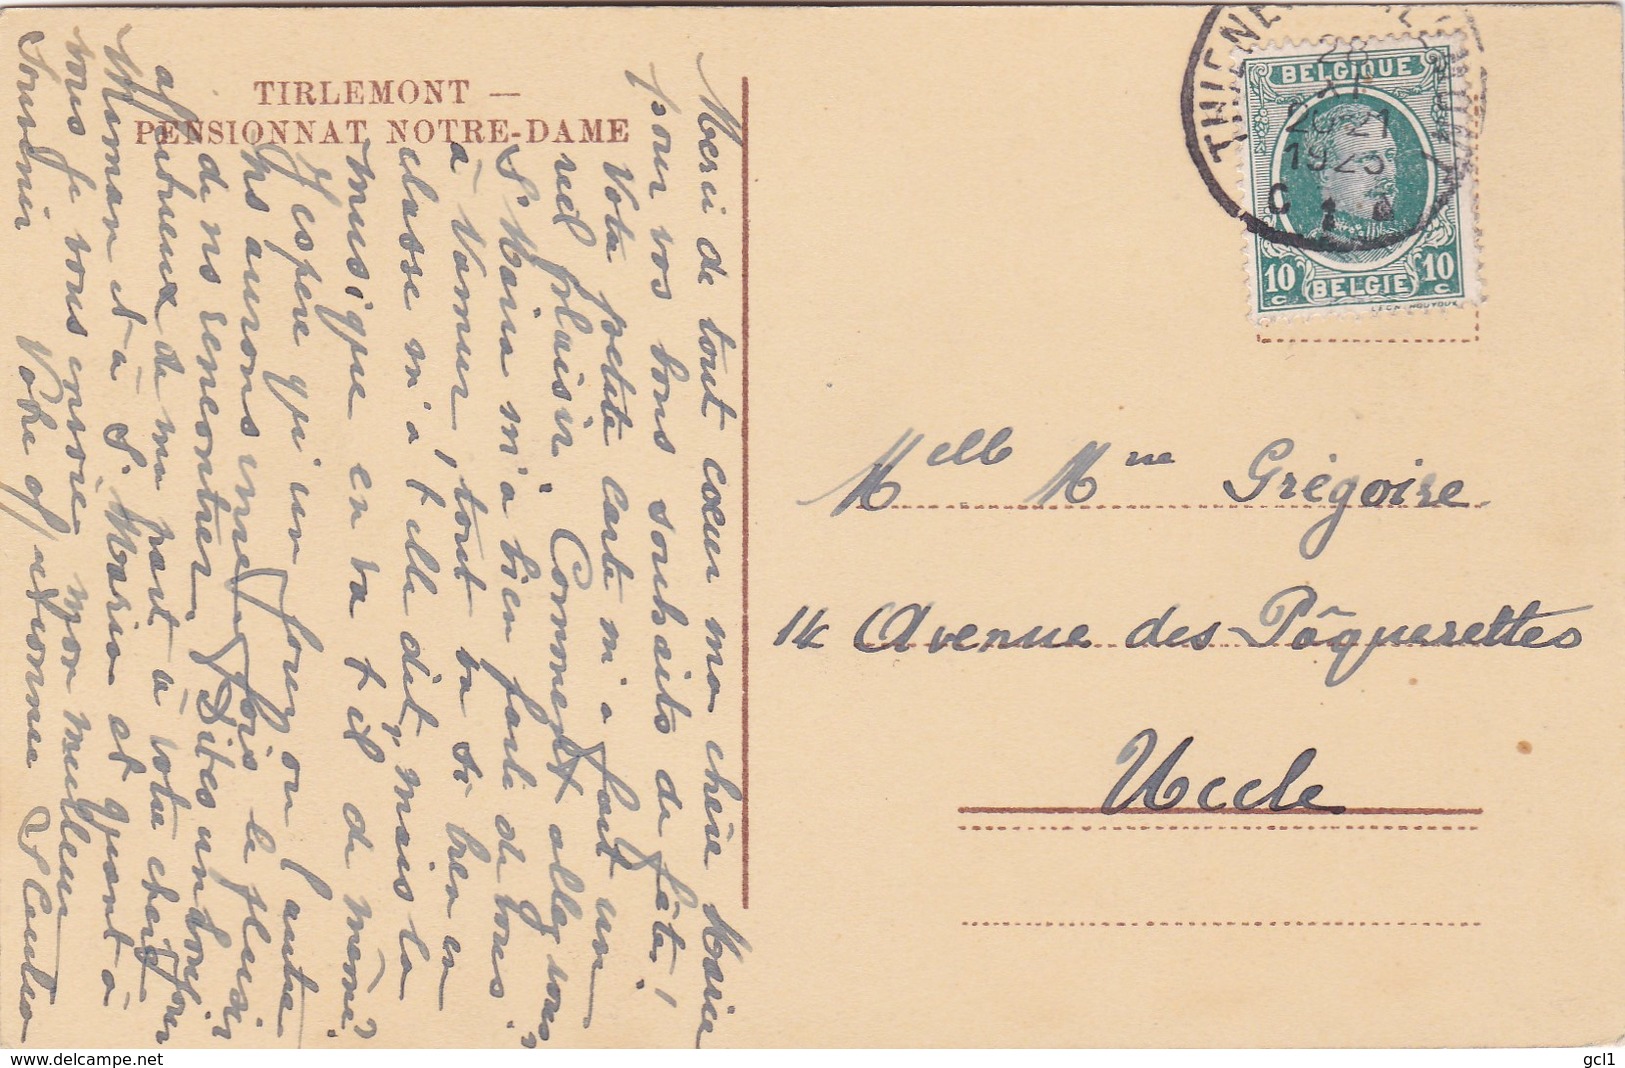 TIRLEMONT —
PENSIONNAT NOTRE-DAME
Merci de tout cœur ma chère Marie
pour vos bons souhaits de fête!
Votre petite carte m'a fait un
réel plaisir. Comment allez vous?
Sr Maria m'a bien parlé de vous
à Namur, tout va si bien en
classe m'a t elle dit, mais la
musique en va t il de même?
J'espère qu'un jour ou l'autre
nous aurons une fois le plaisir
de ns rencontrer. Dites un bonjour
affectueux de ma part à votre chère
Maman et à Sr Maria et quant à
vous je vous envoie mon meilleur
Souvenir Votre affectionnée Sr
THIENEN
28
20-21
192
C 1
BELGIQUE
10 c BELGIE 10 c
Melle Mie Grégoire
14 Avenue des Pâquerettes
Uccle
www.delcampe.net
gcl1